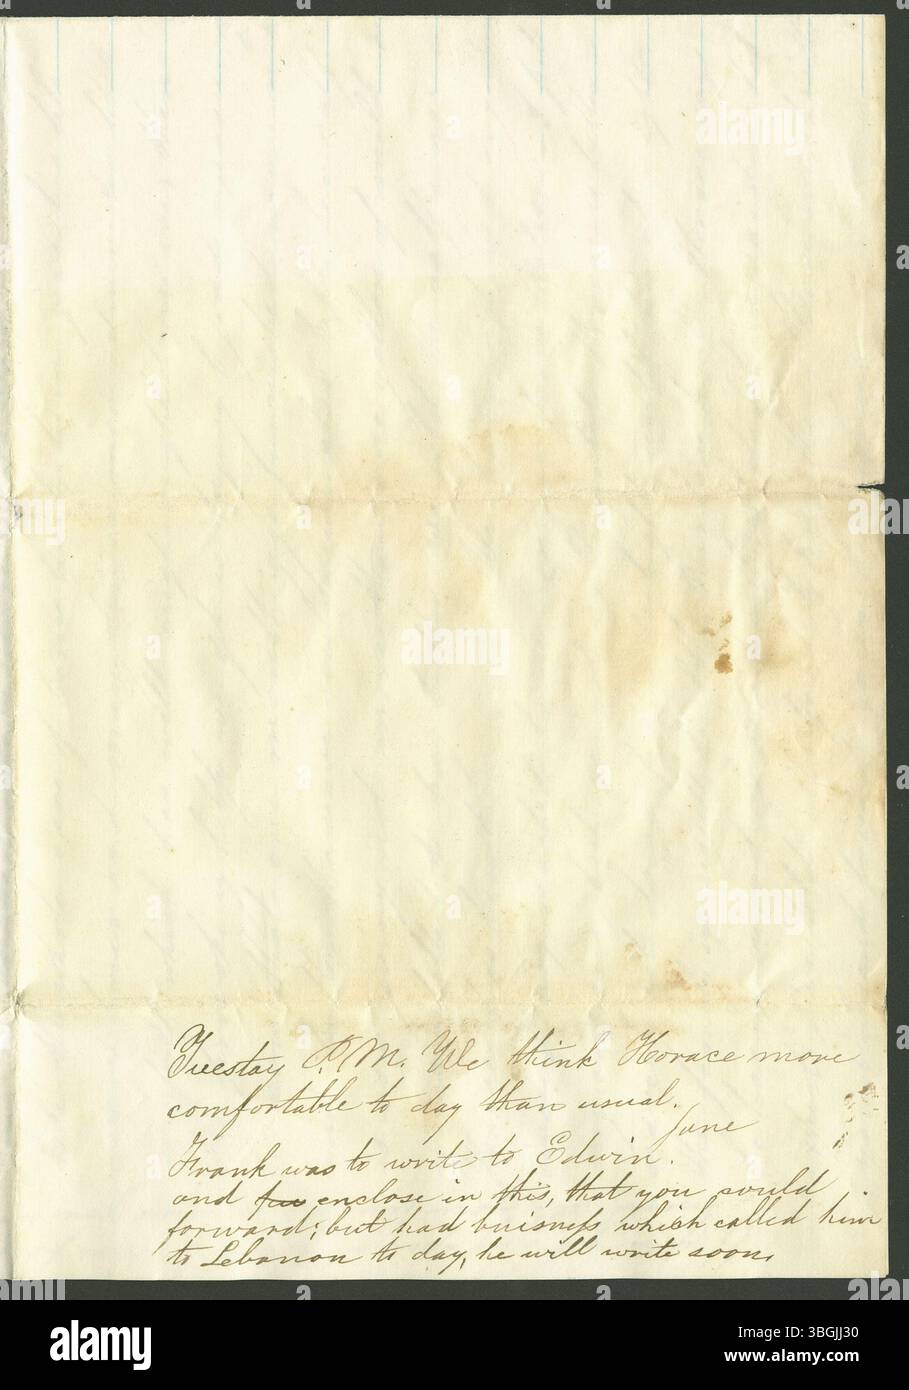 Tuesday P.M. We think Horace more
comfortable to day than usual.
Jane
Frank was to write to Edwin.
and enclose in this, that you could
forward; but had buisness which called him
to Lebanon to day, he will write soon.
alamy
Image ID: 3BGJJ30
www.alamy.com